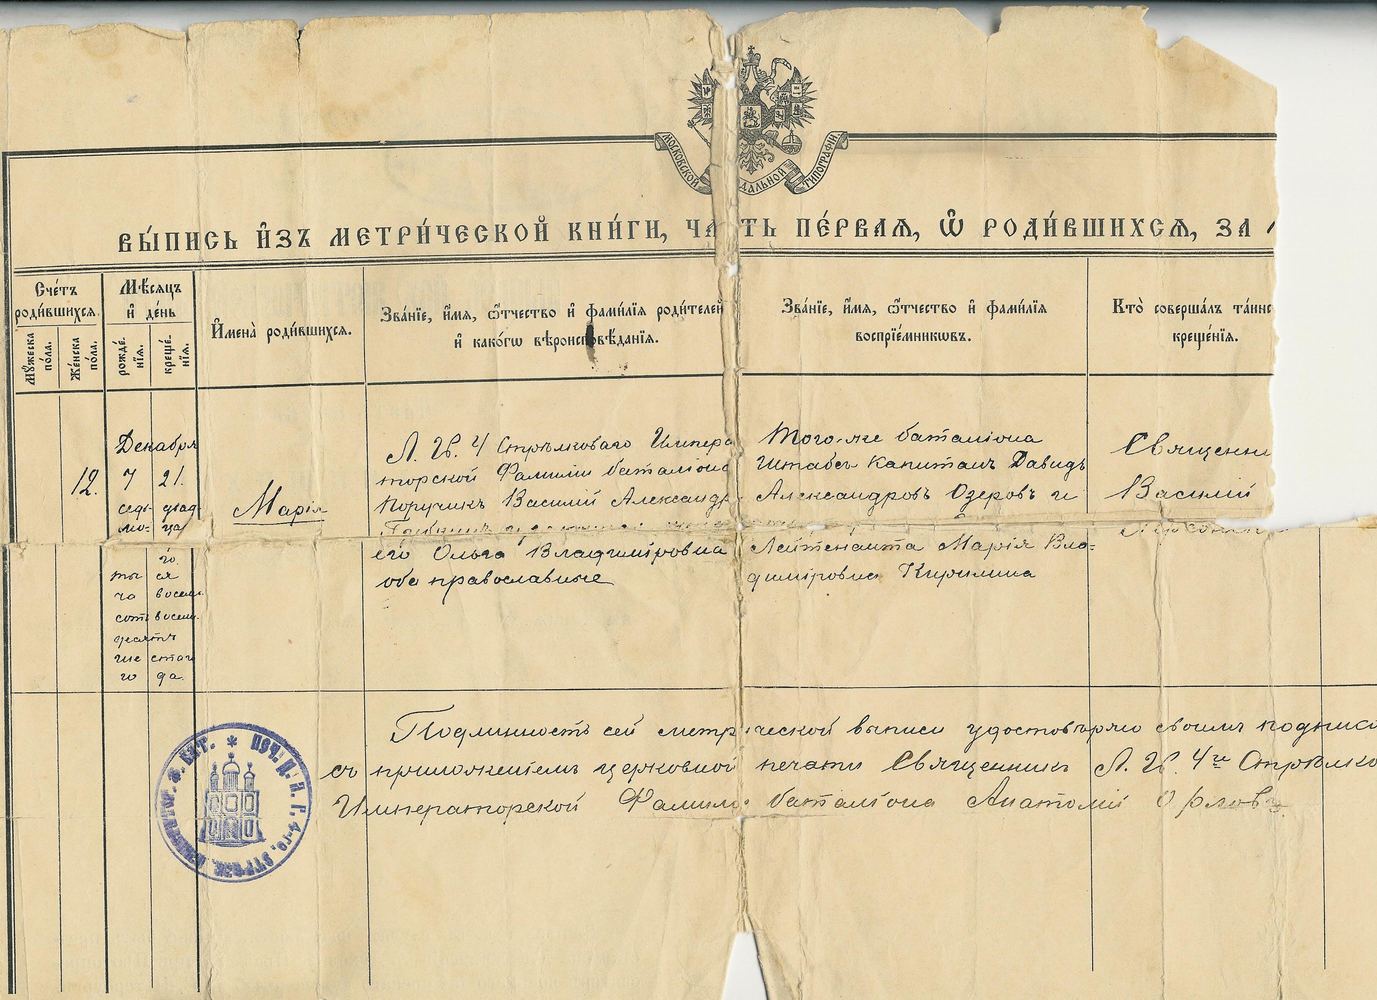 МОСКОВСКОЙ
ДАЛЬНОЙ
ТИПОГРАФІИ
ВЫ́ПИСЬ И҆́ЗЪ МЕТРИ́ЧЕСКОЙ КНИ́ГИ, ЧАСТЬ ПЕ́РВАЯ, Ѿ РОДИ́ВШИХСѦ, ЗА
Сче́тъ
роди́вшихся.
Мꙋ́жеска
по́ла.
Же́нска
по́ла.
Мѣ́сяцъ
и҆ де́нь
рожде́
нїя.
креще́
нїя.
И҆мена̀ роди́вшихся.
Зва́нїе, и҆́мя, ѻ҆́тчество и҆ фами́лїя роди́телей
и҆ како́гѡ вѣроисповѣ́данїя.
Зва́нїе, и҆́мя, ѻ҆́тчество и҆ фами́лїя
воспрїе́мникѡвъ.
Кто̀ соверша́лъ та́инс
креще́нїя.
12.
Декабря
7 21.
седь- двад-
мо- ца
го.
ты ся
ча восемь
сотъ восемь
десятъ
ше стаго
го да.
Марія
Л. Гв. 4 Стрѣлковаго Импера
торской Фамиліи баталіона
Поручикъ Василій Александр
его Ольга Владиміровна
оба православные
Того-же баталіона
Штабсъ Капитанъ Давидъ
Александровъ Озеровъ и
Лейтенанта Марія Вла=
диміровна Кирилина
Священни
Василій
Подлинность сей метрической выписи удостовѣряю своимъ подписо
съ приложеніемъ церковной печати Священникъ Л. Гв. 4го Стрѣлко
Императорской Фамиліи баталіона Анатолій Орловъ.
ПЕЧ. Ц. Л. Г. 4-ГО. СТРѢЛК. ИМПЕРАТОР. Ф. БАТ.